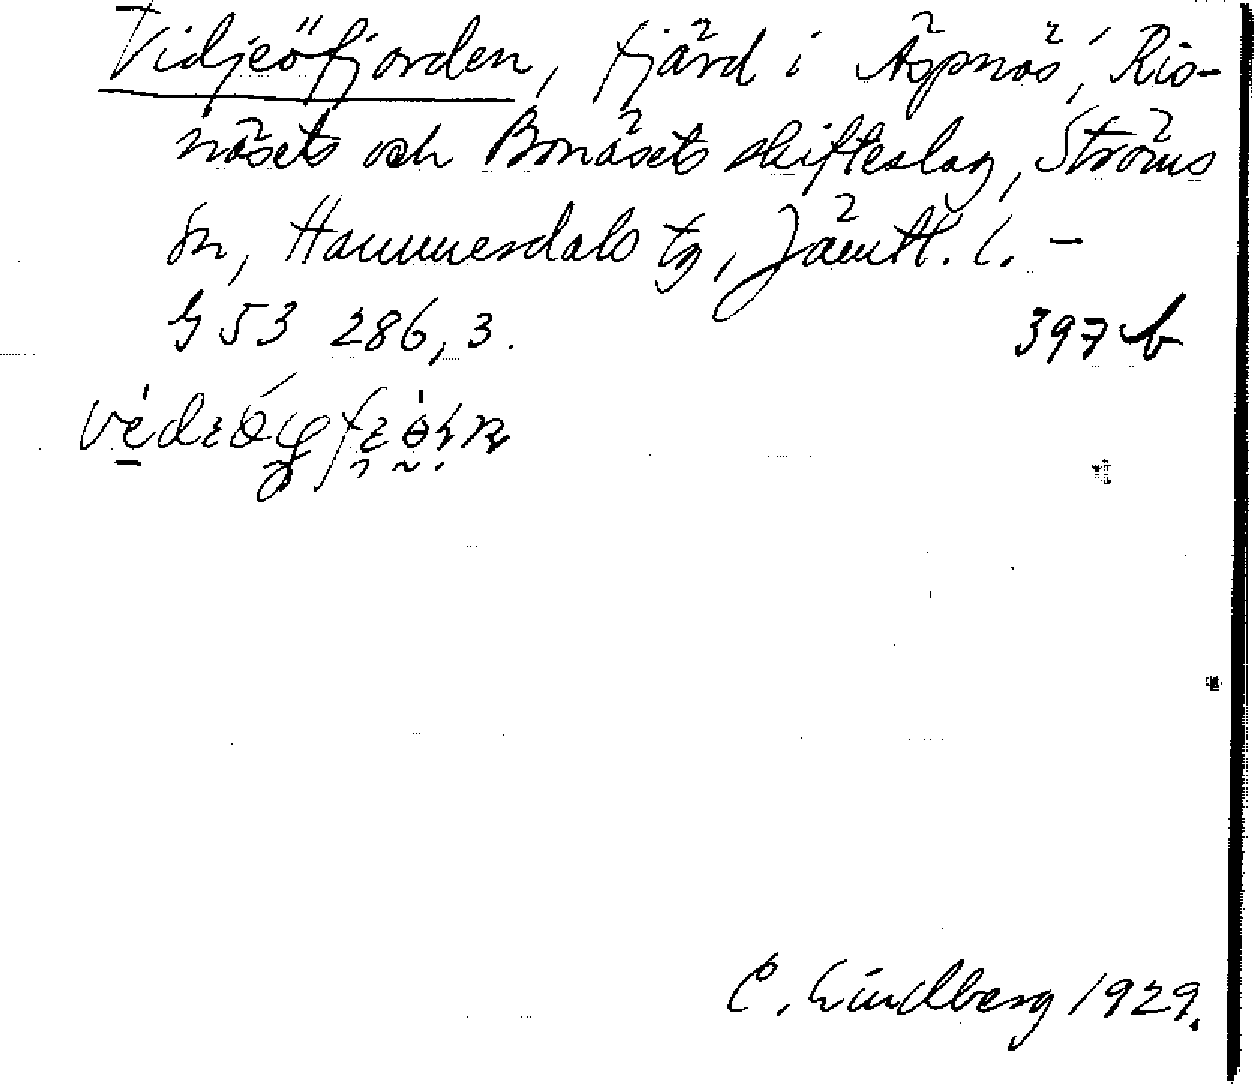 Vidjeöfjorden, fjärd i Äspnäs, Ris-
näsets och Bonäsets skifteslag, Ströms
sn, Hammerdals tg, Jämtl. l. –
G 53 286, 3. 397 b
C. Lindberg 1929.